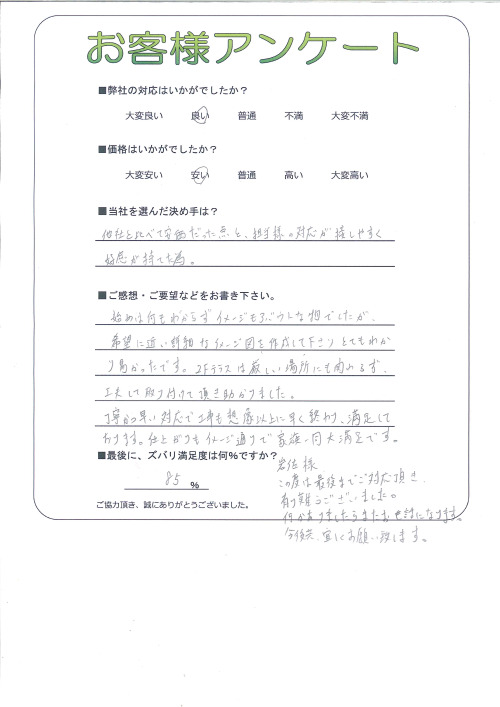 お客様アンケート
■弊社の対応はいかがでしたか？
大変良い 良い 普通 不満 大変不満
■価格はいかがでしたか？
大変安い 安い 普通 高い 大変高い
■当社を選んだ決め手は？
他社と比べて安価だった点と、担当様の対応が接しやすく
好感が持てた為。
■ご感想・ご要望などをお書き下さい。
始めは何もわからずイメージもあやふやな物でしたが、
希望に近い詳細なイメージ図を作成して下さりとてもわか
り易かったです。2Fテラスは厳しい場所にも関わらず、
工夫して取り付けて頂き助かりました。
丁寧かつ早い対応で工事も想像以上に早く終わり、満足して
おります。仕上がりもイメージ通りで家族一同大満足です。
■最後に、ズバリ満足度は何%ですか？
85 %
様
この度は最後までご対応頂き、
有難うございました。
何かありましたらまたお世話になります。
今後共、宜しくお願い致します。
ご協力頂き、誠にありがとうございました。